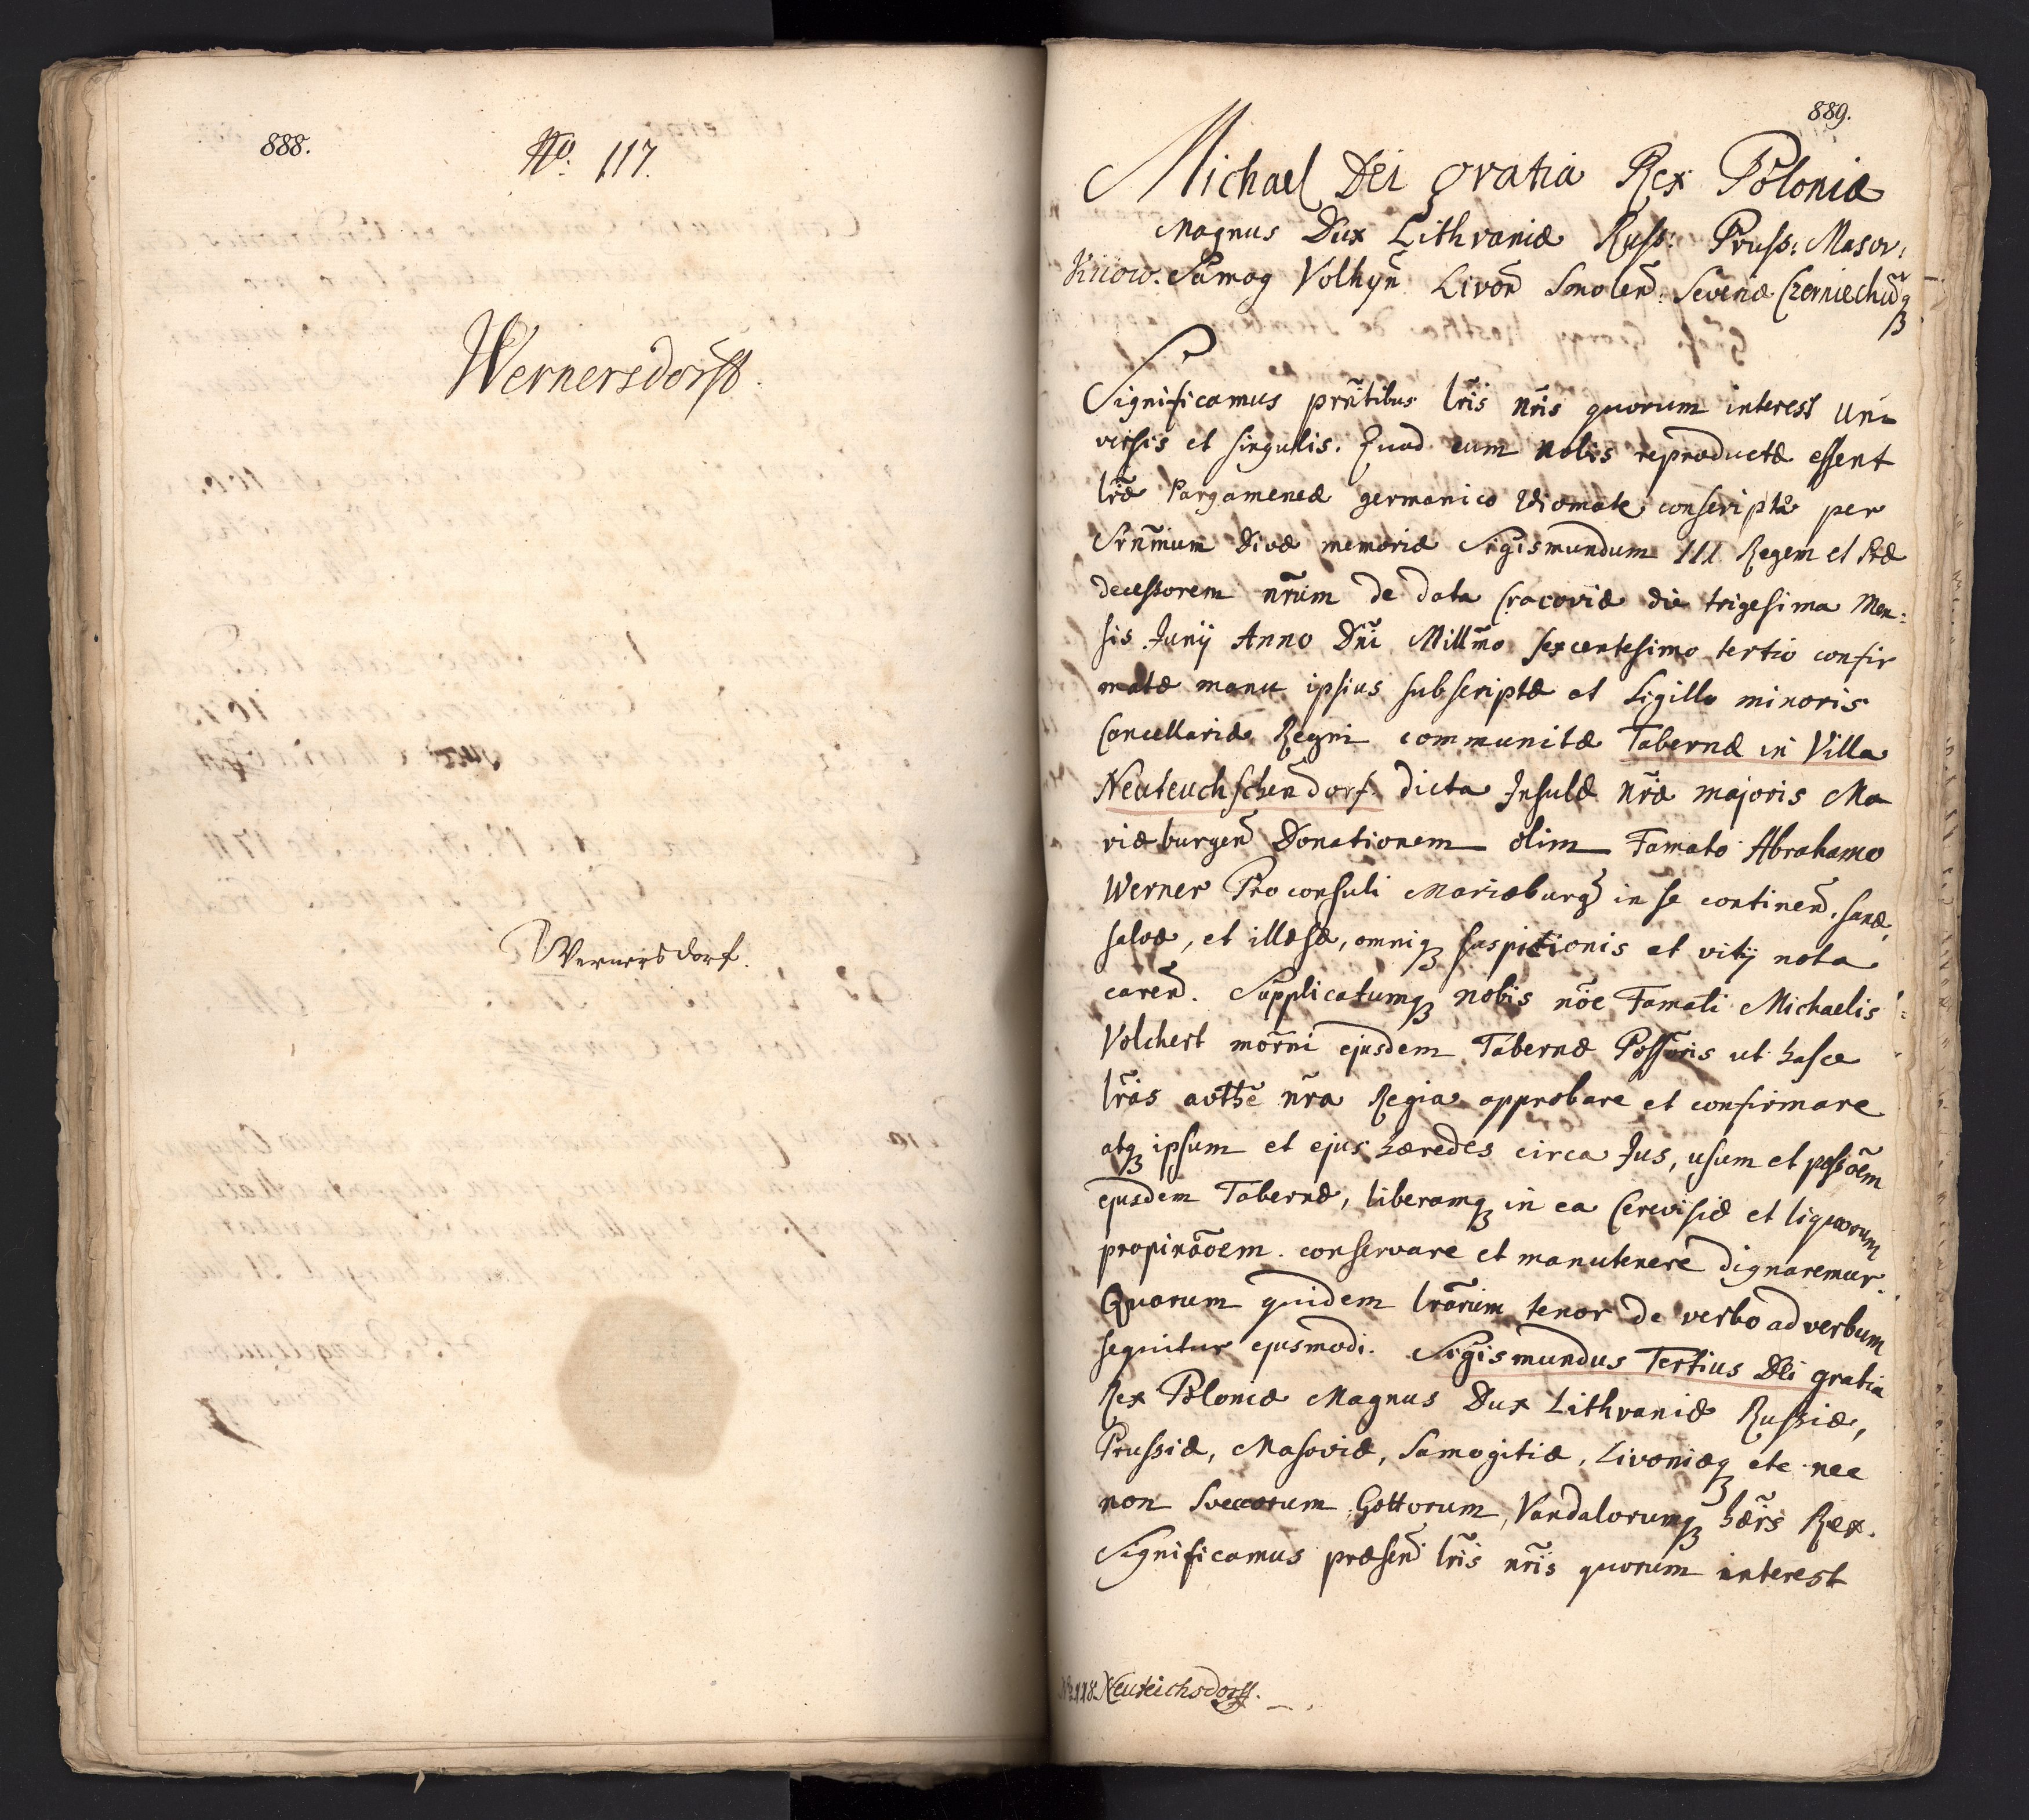 888.
No. 117.
Wernersdorff.
Wernersdorf.
889.
Michael Dei Gratia Rex Poloniæ
Magnus Dux Lithvaniæ Russ: Pruss: Masov:
Kiiow. Samog Volhyñ Livoñ Smoleñ: Severiæ Czerniechūq₃
Significamus prñtibus lr̃is nr̃is quorum interest uni
versis et singulis. Quod cum nobis reproductæ essent
lr̃æ Pargameneæ germanico Idiomate conscriptæ per
Srñmum Divæ memoriæ Sigismundum III Regem et Præ
decessorem nr̃um de data Cracoviæ die trigesima Men:
sis Junij Anno Dñi Millm̃o sexcentesimo tertio confir
matæ manu ipsius subscriptæ et Sigillo minoris
Cancellariæ Regni communitæ Tabernæ in Villa
Neuteuchschendorf. dicta Insulæ nr̃æ majoris Ma
riæburgeñ Donationem olim Famato Abrahamo
Werner Proconsuli Mariæburg̃ in se contineñ. sanæ,
salvæ, et illæsæ, omniq₃ suspitionis et vitij nota
careñ. Supplicatumq₃ nobis nõe Famati Michaelis
Volchert mor̃ni ejusdem Tabernæ Possõris ut hasce
lr̃as avthẽ nr̃a Regia approbare et confirmare
atq₃ ipsum et ejus hæredes circa Jus, usum et possõem
ejusdem Tabernæ, liberamq₃ in ea Cerevisiæ et liquorum
propinãoem. conservare et manutenere dignaremur.
Quarum quidem lr̃arum tenor de verbo ad verbum
sequitur ejusmodi. Sigismundus Tertius Dei gratia
Rex Poloniæ Magnus Dux Lithvaniæ Russiæ,
Prussiæ, Masoviæ, Samogitiæ, Livoniæq₃ etc. nec
non Sveccorum, Gottorum, Vandalorumq₃ hær̃s Rex.
Significamus præseñ lr̃is nr̃is quorum interest
No 118. Neuteichsdorff.